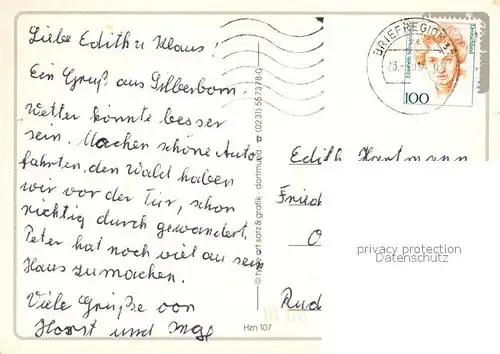 Liebe Edith u Klaus!
Ein Gruß aus Silberborn.
Wetter könnte besser
sein. Machen schöne Auto-
fahrten, den Wald haben
wir vor der Tür, schon
richtig durch gewandert.
Peter hat noch viel an sein
Haus zu machen.
Viele Grüße von
Horst und Inge
art satz & grafik · dortmund ☎ (0231) 557378-0
Hzn 107
BRIEFREGION
100
Edith Hartmann
Fried
O
Rud
privacy protection
Datenschutz